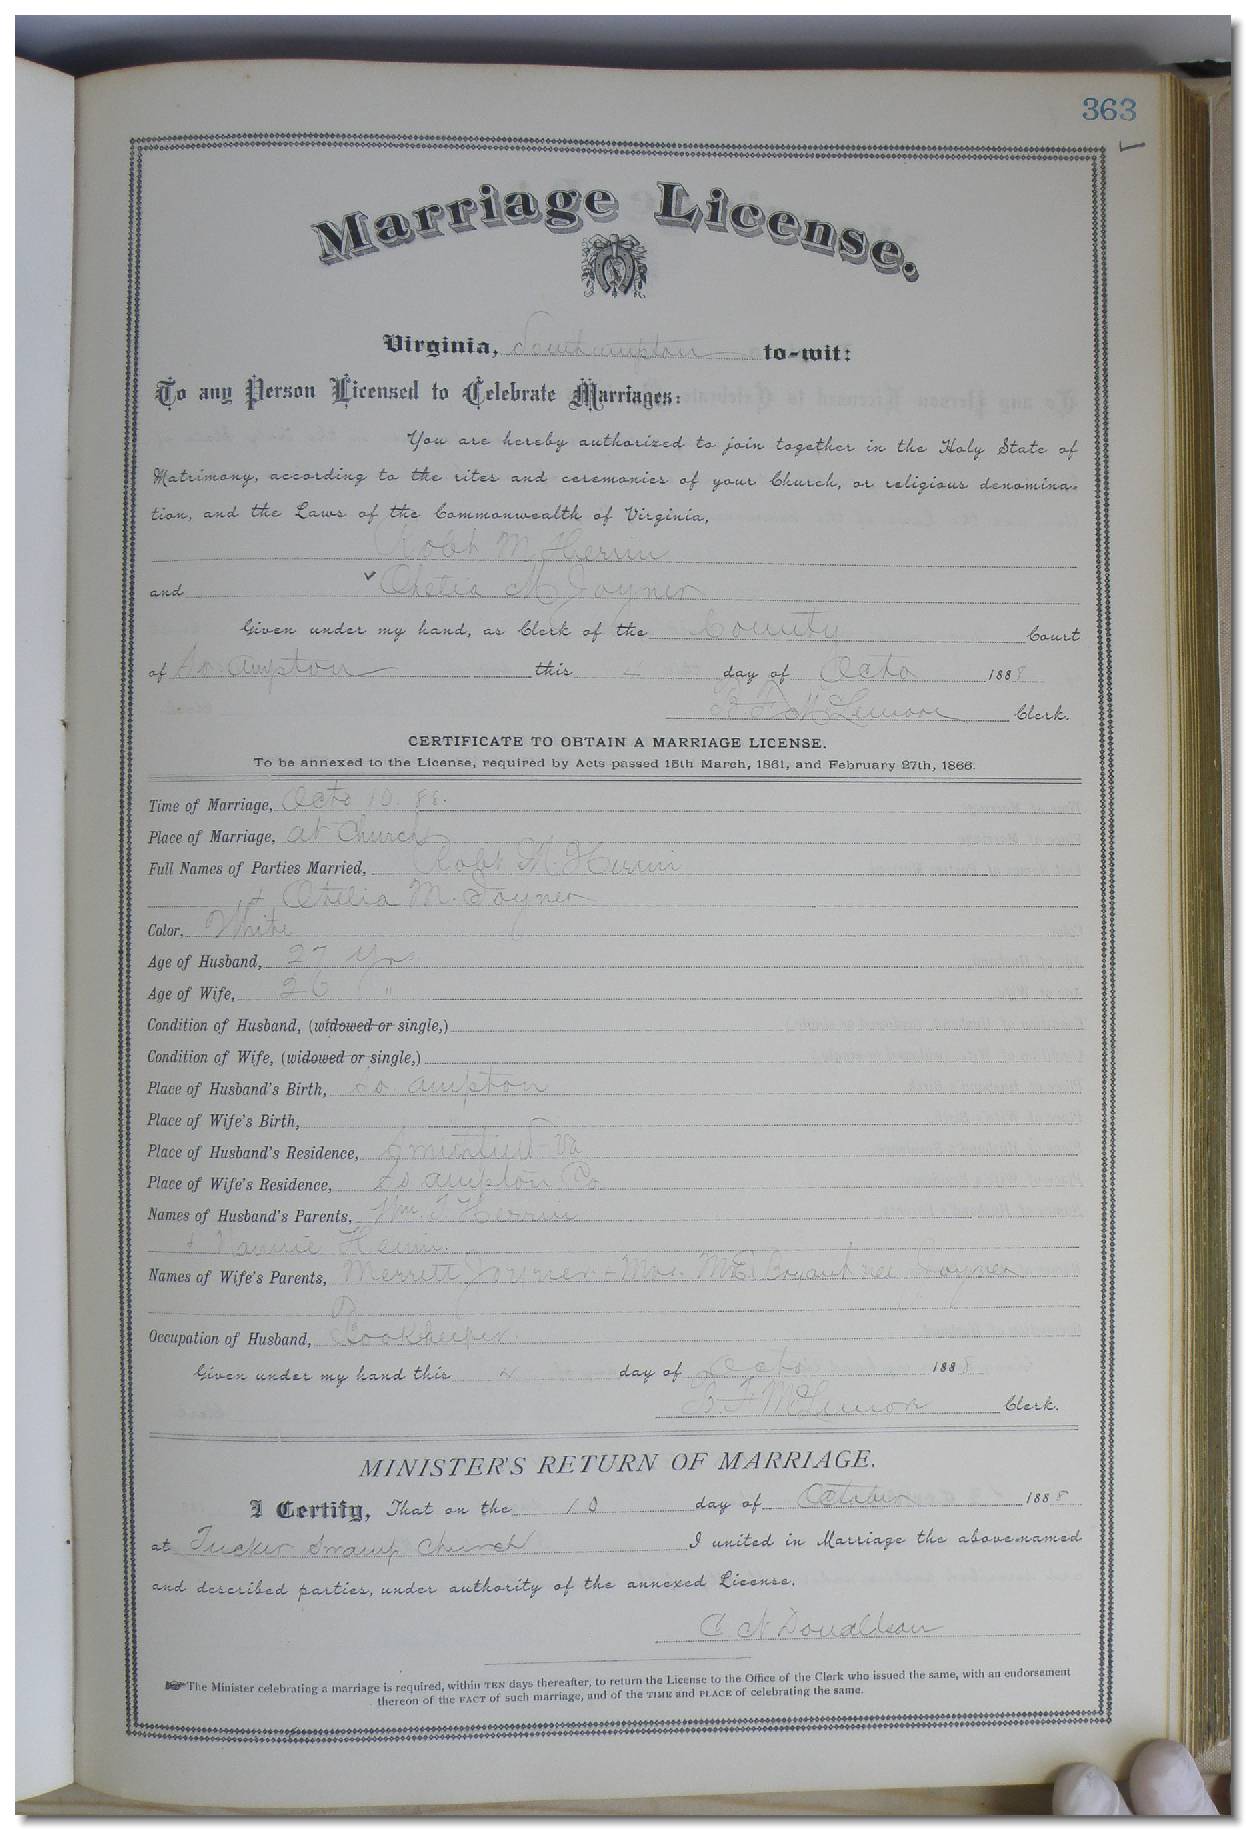 363
Marriage License.
Virginia, Southampton to-wit:
To any Person Licensed to Celebrate Marriages:
You are hereby authorized to join together in the Holy State of
Matrimony, according to the rites and ceremonies of your Church, or religious denomina-
tion, and the Laws of the Commonwealth of Virginia,
Robt M Herrin
and Othelia M Joyner
Given under my hand, as Clerk of the County Court
of So ampton this 4 day of Octo 1888
B F McLemore Clerk.
CERTIFICATE TO OBTAIN A MARRIAGE LICENSE.
To be annexed to the License, required by Acts passed 15th March, 1861, and February 27th, 1866.
Time of Marriage, Octo 10. 88.
Place of Marriage, at Church
Full Names of Parties Married, Robt M. Herrin
+ Othelia M. Joyner
Color, White
Age of Husband, 27 Yrs
Age of Wife, 26 "
Condition of Husband, (widowed or single,)
Condition of Wife, (widowed or single,)
Place of Husband's Birth, So ampton
Place of Wife's Birth, "
Place of Husband's Residence, Va
Place of Wife's Residence, So ampton Co
Names of Husband's Parents, Wm Herrin
+ Nannie Herrin.
Names of Wife's Parents, Merritt Joyner - Mrs. Bryant nee Joyner
Occupation of Husband, Bookkeeper.
Given under my hand this 4 day of Octo 1888
B. F McLemore Clerk.
MINISTER'S RETURN OF MARRIAGE.
I Certify, That on the 10 day of October 1888
at Tucker Swamp Church I united in Marriage the above-named
and described parties, under authority of the annexed License.
Donaldson
The Minister celebrating a marriage is required, within TEN days thereafter, to return the License to the Office of the Clerk who issued the same, with an endorsement
thereon of the FACT of such marriage, and of the TIME and PLACE of celebrating the same.